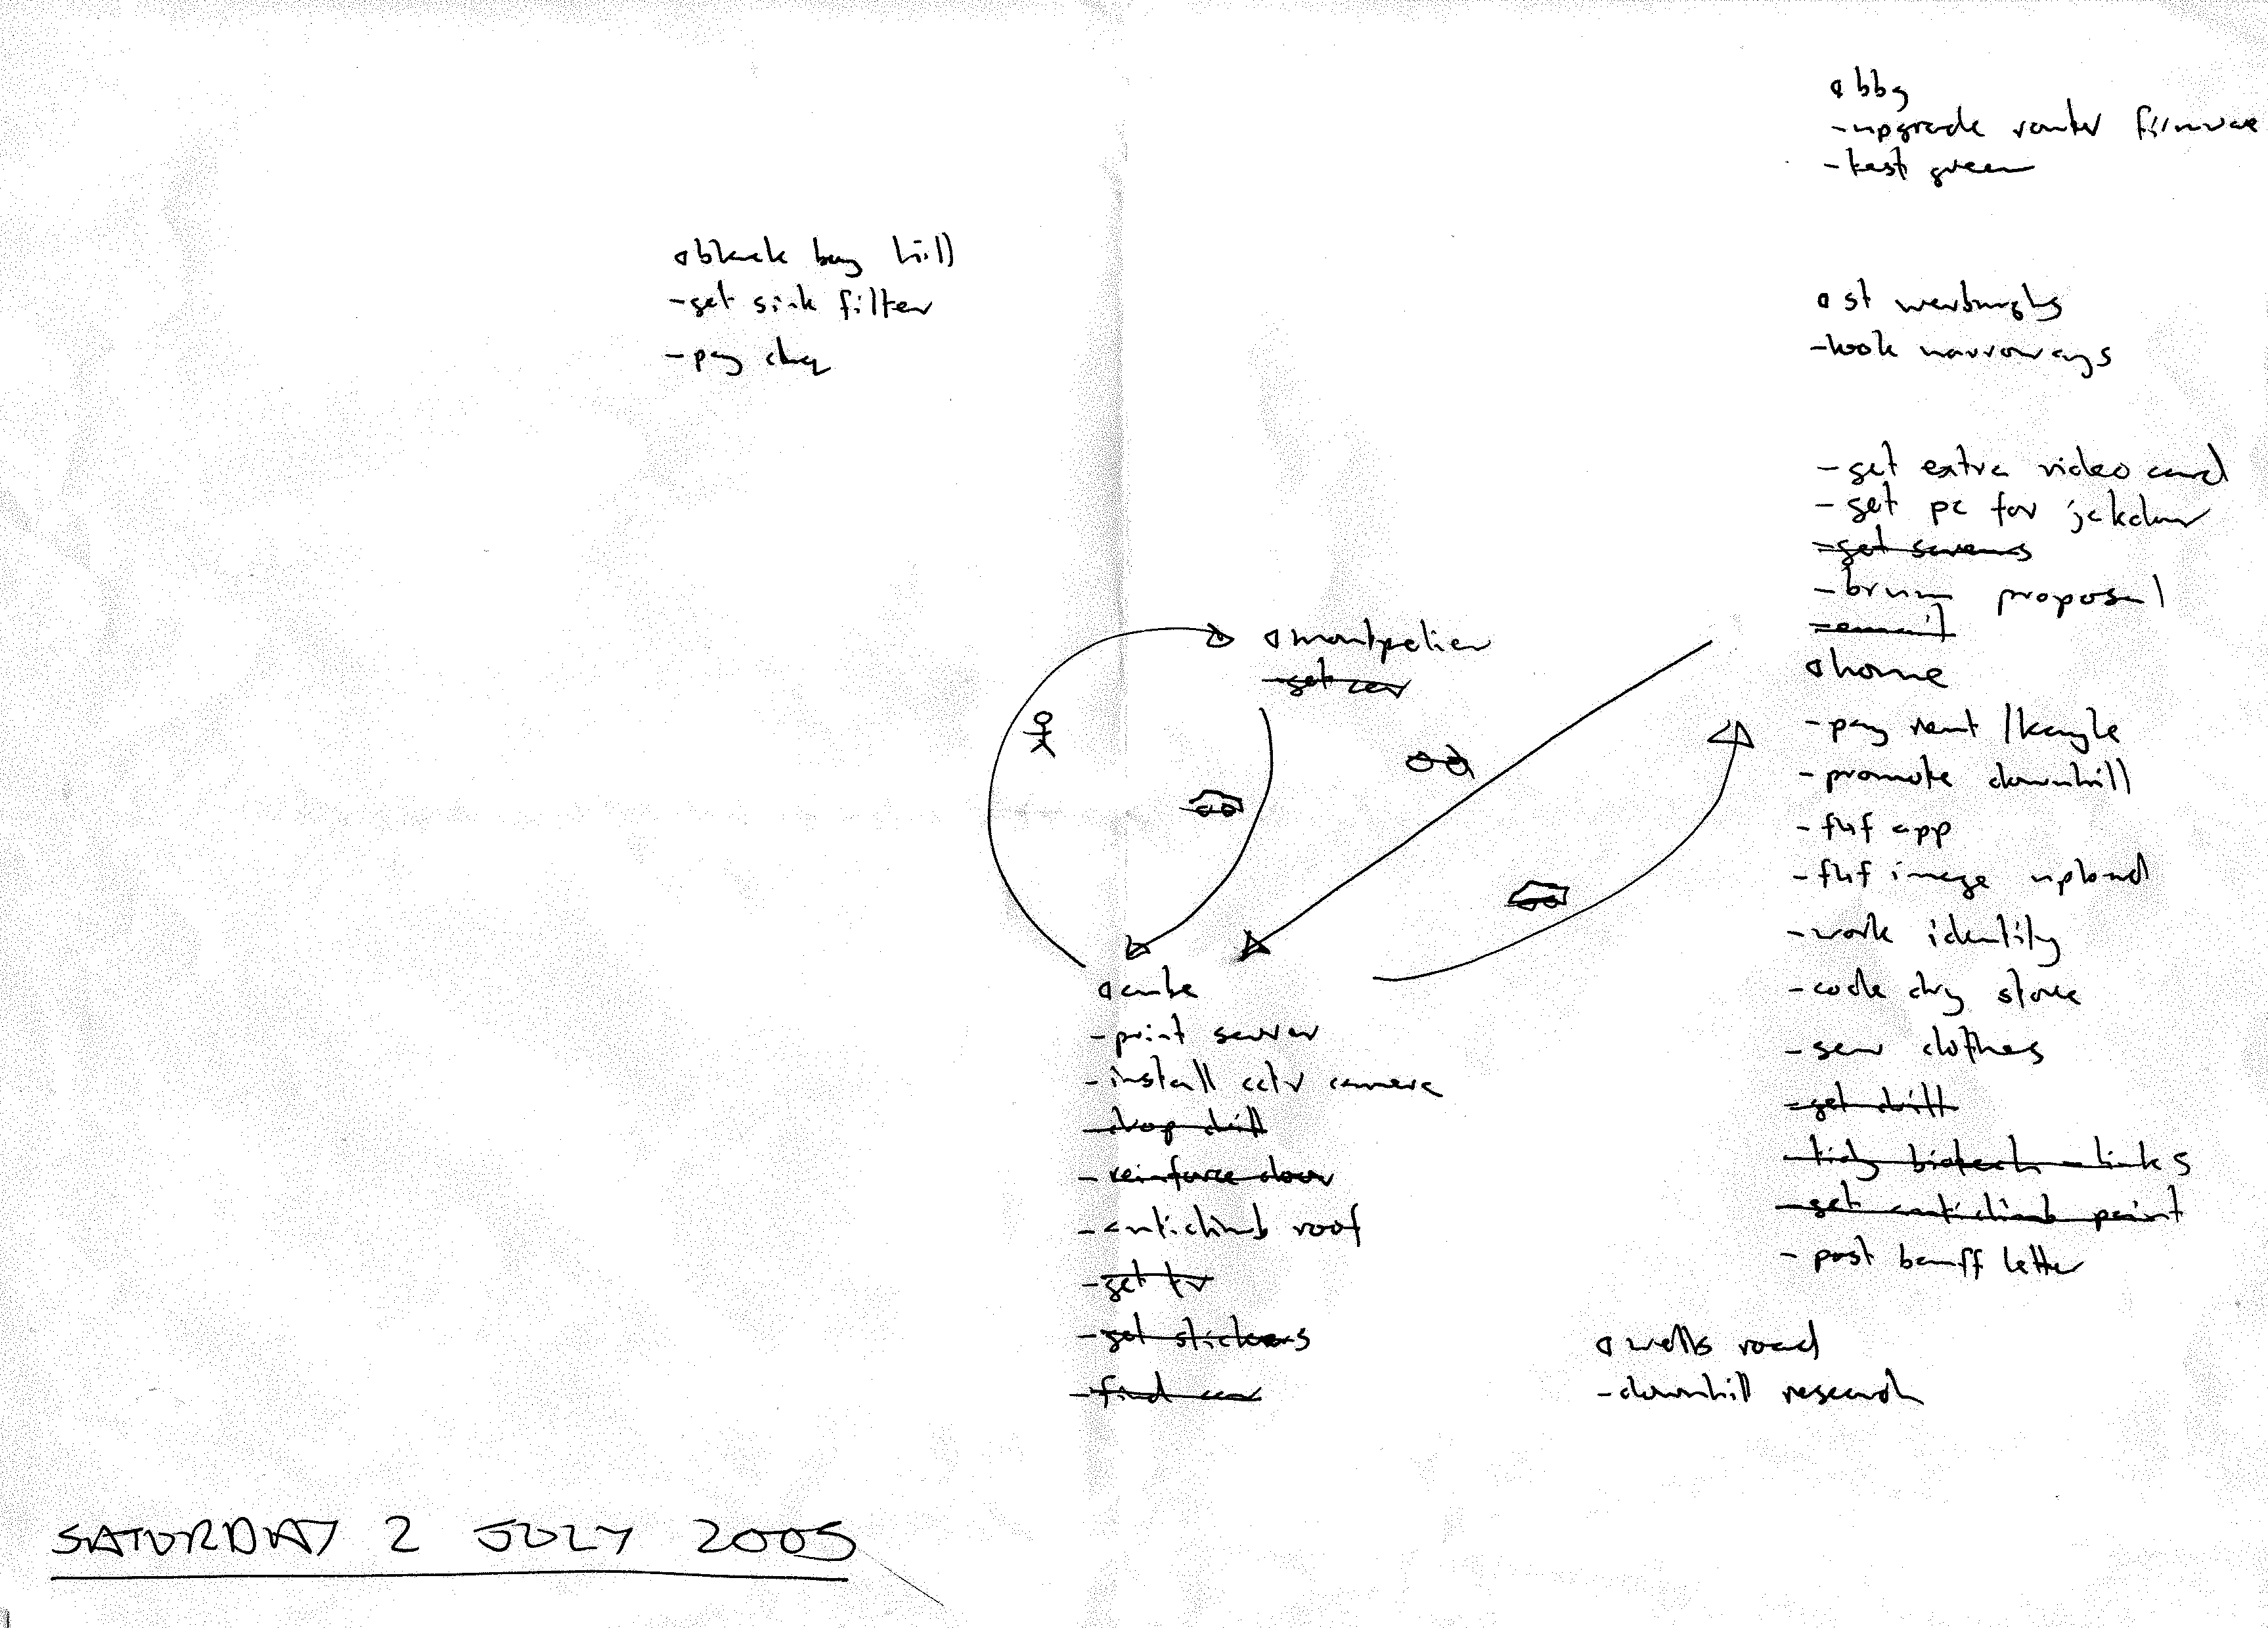 bbg
-upgrade router firmware
-test green
black boy hill
-get sink filter
-pay chq
st werburghs
-look narroways
-get extra video card
-get pc for jckdaw
-get screens
-brum proposal
-email
home
-pay rent /kayle
-promote downhill
-fhf app
-fhf image upload
-work identity
-code dry stone
-sew clothes
-get drill
-tidy biotech-links
-get anticlimb paint
-post banff letter
montpelier
-get car
cube
-print server
-install cctv camera
-drop drill
-reinforce door
-anticlimb roof
-get tv
-get stickers
-find car
wells road
-downhill research
SATURDAY 2 JULY 2005